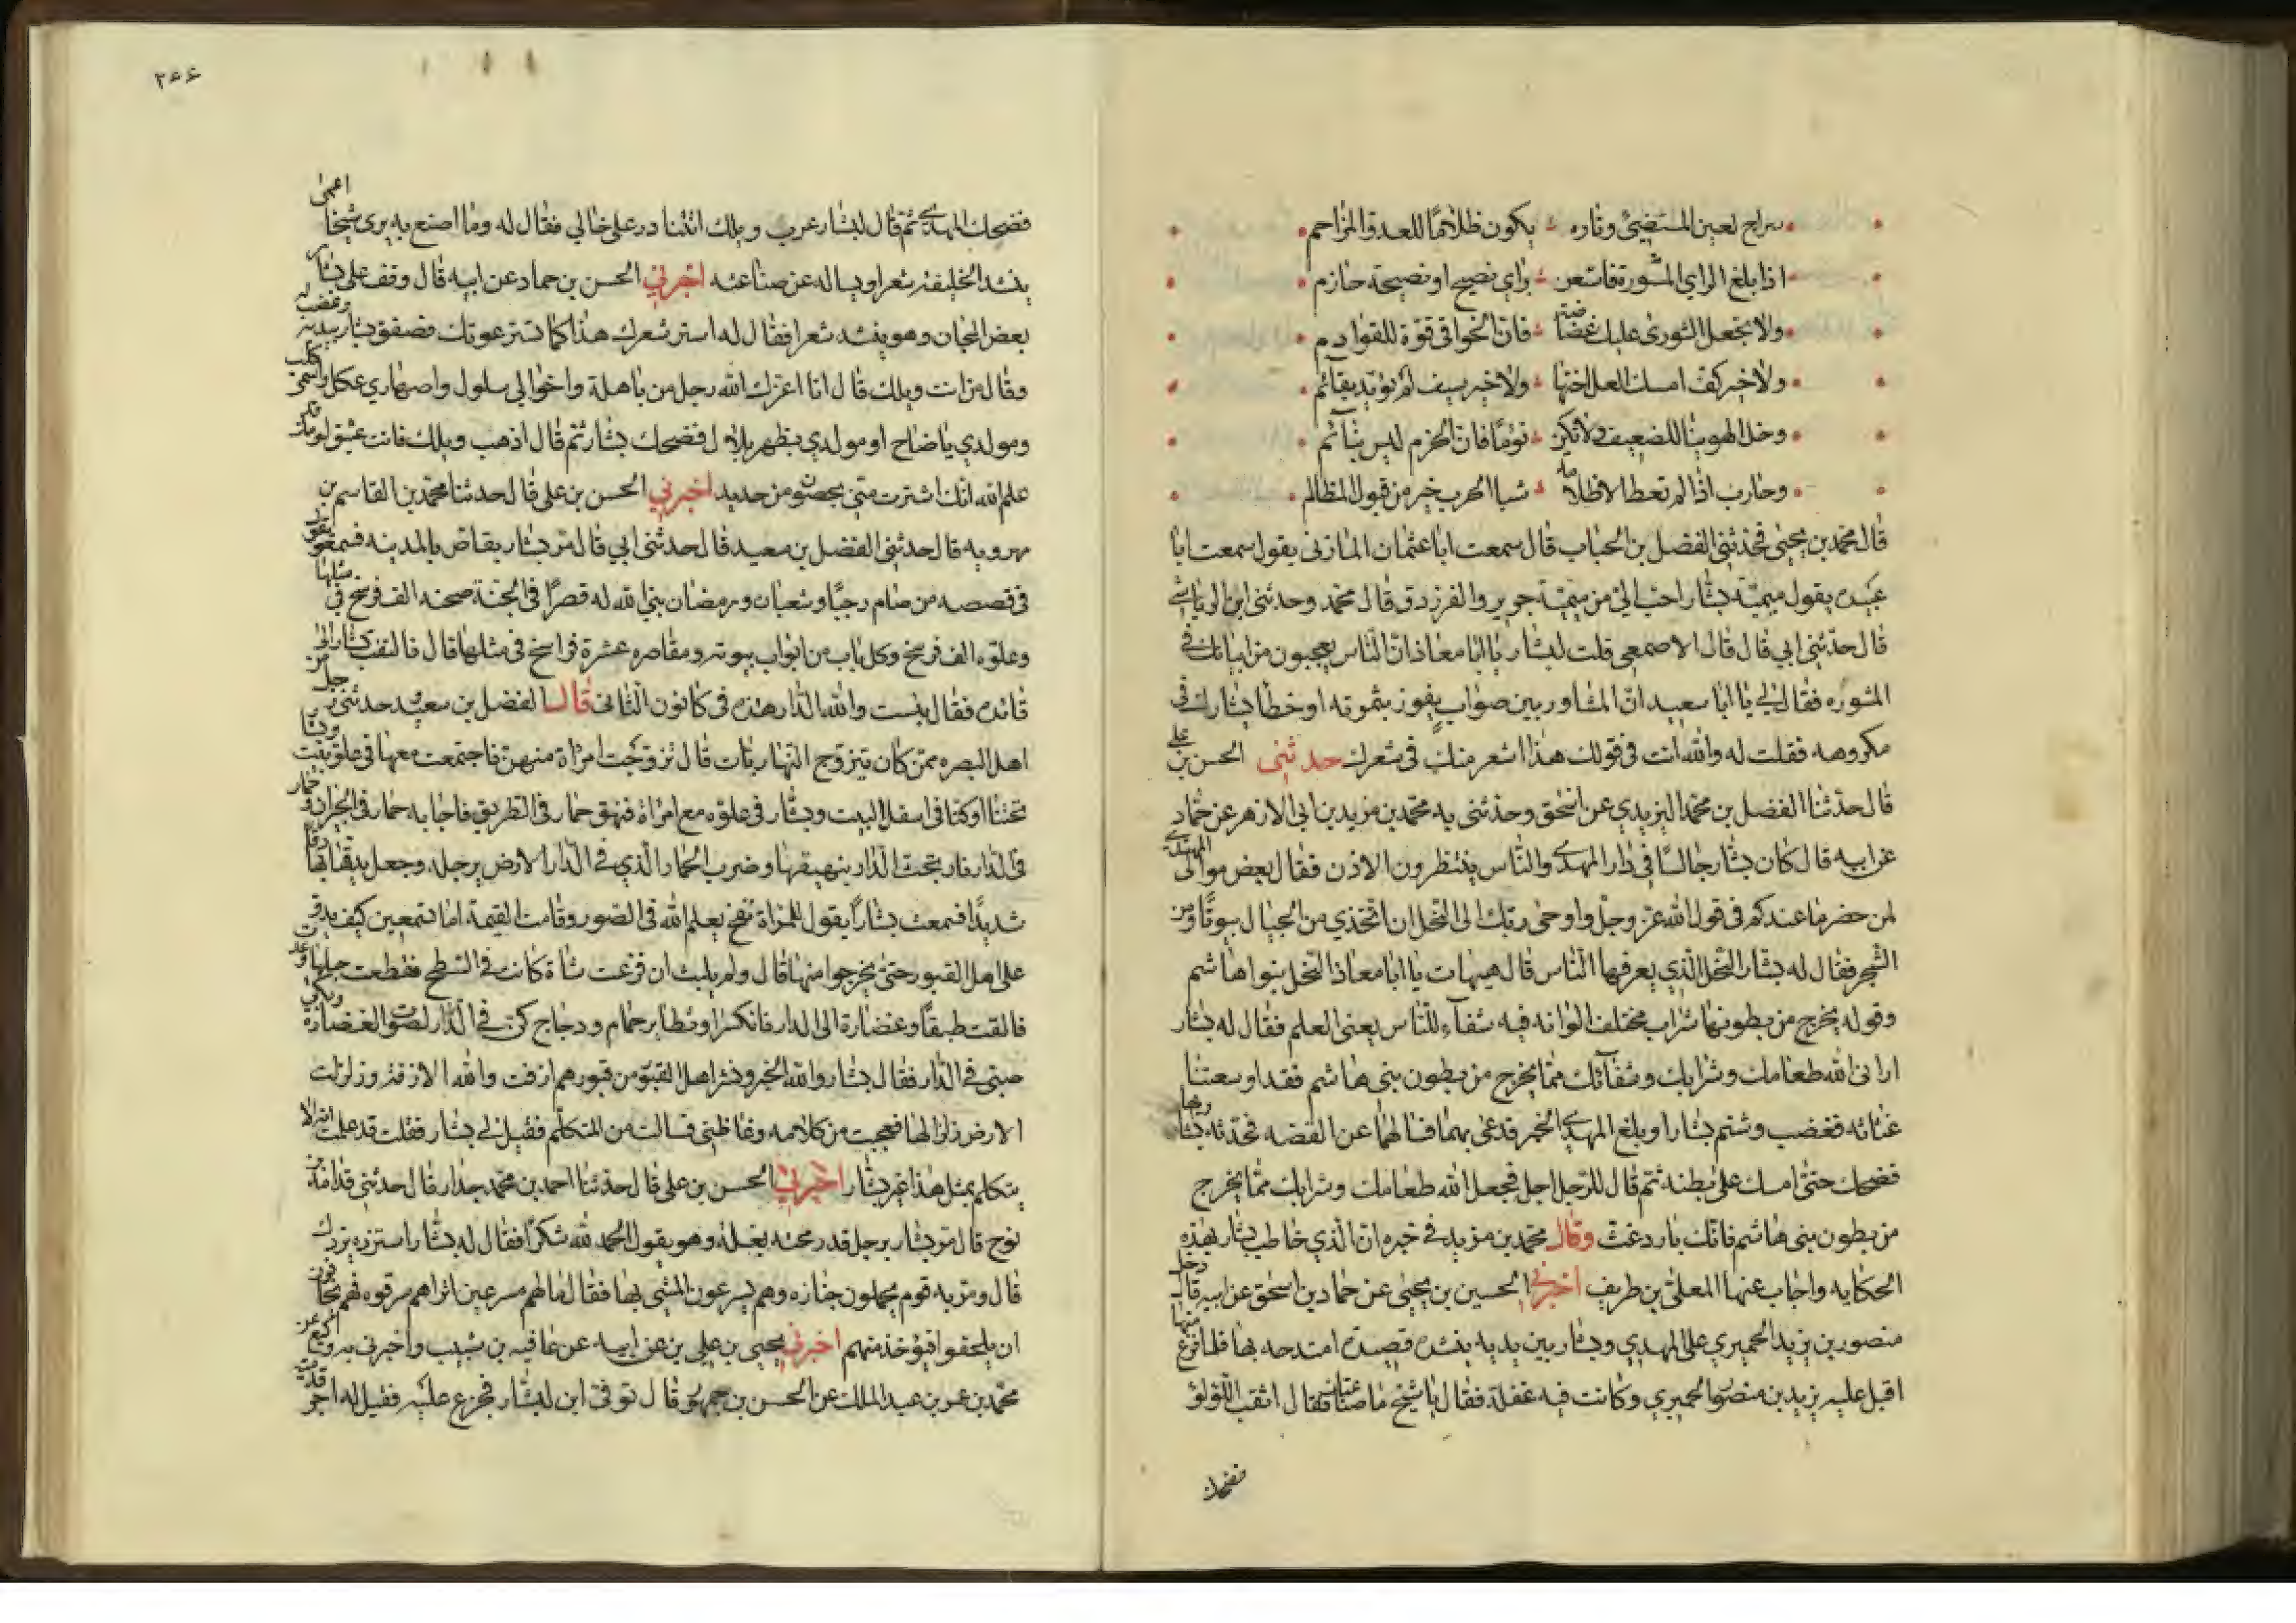 سراج لعين المستضيئ وتاره يكون ظلامًا للعدو المزاحم
اذا بلغ الراي المشورة فاستعن براي نصيح او نصيحة حازم
ولا تجعل الشورى عليك غضاضة فان الخوافى قوّة للقوادم
ولا خير كف امسك الغل اختها ولا خير سيف لم يؤيد بقائم
وخل الهوينا للضعيف ولا تكن نومًا فان الحزم ليس بنائم
وحارب اذا لم تعط الا ظلامه شبا الحرب خير من قبول المظالم
قال محمد بن يحيى فحدثنى الفضل بن الحباب قال سمعت ابا عثمان المازنى يقول سمعت ابا
عبيده يقول ميميّة بشار احب الىّ من ميميّة جرير والفرزدق قال محمد وحدثنى ابن الرياشى
قال حدّثنى ابى قال قال الاصمعى قلت لبشار يا ابا معاذ انّ الناس يعجبون من ابياتك فى
المشوره فقال لى يا ابا سعيد انّ المشاور بين صواب يفوز بثمرته او خطأ يشارك فى
مكروهه فقلت له والله انت فى قولك هذا اشعر منك فى شعرك حدثنى الحسن بن على
قال حدّثنا الفضل بن محمد اليزيدي عن اسحق وحدثنى به محمد بن مزيد بن ابى الازهر عن حماد
عن ابيه قال كان بشار جالسًا فى دار المهدى والناس ينتظرون الاذن فقال بعض موالى المهدى
لمن حضر ما عندكم فى قول الله عزّ وجلّ واوحى ربّك الى النحل ان اتخذي من الجبال بيوتًا ومن
الشجر فقال له بشار النحل الّذي يعرفها النّاس قال هيهات يا ابا معاذ النحل بنوا هاشم
وقوله يخرج من بطونها شراب مختلف الوانه فيه شفآء للنّاس يعنى العلم فقال له بشار
ارانى الله طعامك وشرابك وشفآئك ممّا يخرج من بطون بنى هاشم فقد اوسعتنا
غثاثه فغضب وشتم بشارا وبلغ المهدى الخبر فدعى بهما فسالهما عن القصه فحدثه بشار بها
فضحك حتّى امسك على بطنه ثم قال للرّجل اجل فجعل الله طعامك وشرابك ممّا يخرج
من بطون بنى هاشم فانّك بارد غث وقال محمد بن مزيد فى خبره ان الّذي خاطب بشار بهذه
الحكايه واجاب عنها المعلّى بن طريف اخبرنى الحسين بن يحيى عن حماد بن اسحق عن ابيه قال دخل
منصور بن يزيد الحميري على المهدي وبشار بين يديه ينشده قصيدة امتدحه بها فلما فرغ منها
اقبل عليه يزيد بن منصور الحميري وكانت فيه غفلة فقال يا شيخ ما صناعتك فقال اثقب اللؤلؤ
فضحك
٢٦٦
فضحك المهدى ثم قال لبشار عرب ويلك اتتنادر على خالى فقال له وما اصنع به يرى شيخا اعمى
ينشد الخليفة شعرا ويساله عن صناعته اخبرنى الحسن بن حماد عن ابيه قال وقف على بشار
بعض المجان وهو ينشد شعرا فقال له استر شعرك هذا كما تستر عورتك فصفق بشار بيديه وغضب
وقال من انت ويلك قال انا اعزك الله رجل من باهلة واخوالى سلول واصهاري عكل واسمى كلب
ومولدي باضاح او مولدي بظهر بلال فضحك بشار ثم قال اذهب ويلك فانت عتيق لومك قد
علم الله انّك استترت منّى بحصون من حديد اخبرنى الحسن بن على قال حدثنا محمد بن القاسم بن
مهرويه قال حدثنى الفضل بن سعيد قال حدثنى ابى قال مرّ بشار بقاص بالمدينه فسمعه يقول
فى قصصه من صام رجبًا وشعبان ورمضان بنى الله له قصرًا فى الجنّة صحنه الف فرسخ فى مثلها
وعلوّه الف فرسخ وكل باب من ابواب بيوته ومقاصره عشرة فراسخ فى مثلها قال فالتفت بشار الى
قائده فقال بئست والله الدار هذه فى كانون الثانى قال الفضل بن سعيد حدثنى رجل من
اهل البصره ممّن كان يتزوج النهاريات قال تزوّجت امرأة منهن فاجتمعت معها فى علو بيت وبشار
تحتنا او كنا فى اسفل البيت وبشار فى علوه مع امراة فنهق حمار فى الطريق فاجابه حمار فى الجيران وحمار
فى الدار فارتجت الدار بنهيقها وضرب الحمار الّذي فى الدار الارض برجله وجعل يدقها بها دقا
شديدًا فسمعت بشارًا يقول للمرأة نفخ يعلم الله فى الصور وقامت القيمة اما تسمعين كيف يدق
على اهل القبور حتى يخرجوا منها قال ولم يلبث ان فزعت شاة كانت فى السّطح فقطعت حبلها وعدت
فالقت طبقًا وغضارة الى الدار فانكسرا وتطاير حمام ودجاج كنّ فى الدّار لصوت الغضارة وبكى
صبى فى الدّار فقال بشار والله الخبر ونشر اهل القبور من قبورهم ازفت والله الازفه وزلزلت
الارض زلزالها فعجبت من كلامه وغاظنى فسالت من المتكلّم فقيل لى بشار فقلت قد علمت انه لا
يتكلم بمثل هذا غير بشّار اخبرنى الحسن بن على قال حدّثنا احمد بن محمد جدار قال حدثنى قدامة بن
نوح قال مرّ بشار برجل قد رمحته بغله وهو يقول الحمد لله شكرًا فقال له بشار استزده يزدك
قال ومرّ به قوم يحملون جنازه وهم يسرعون المشى بها فقال ما لهم مسرعين اتراهم سرقوه فهم يخافون
ان يلحقوا فيؤخذ منهم اخبرنى يحيى بن على بن عن ابيه عن عافيه بن شبيب واخبرنى به وكيع عن
محمّد بن عمر بن عبد الملك عن الحسن بن جمهور قال توفى ابن لبشّار فجزع عليه فقيل له اجر قدمته